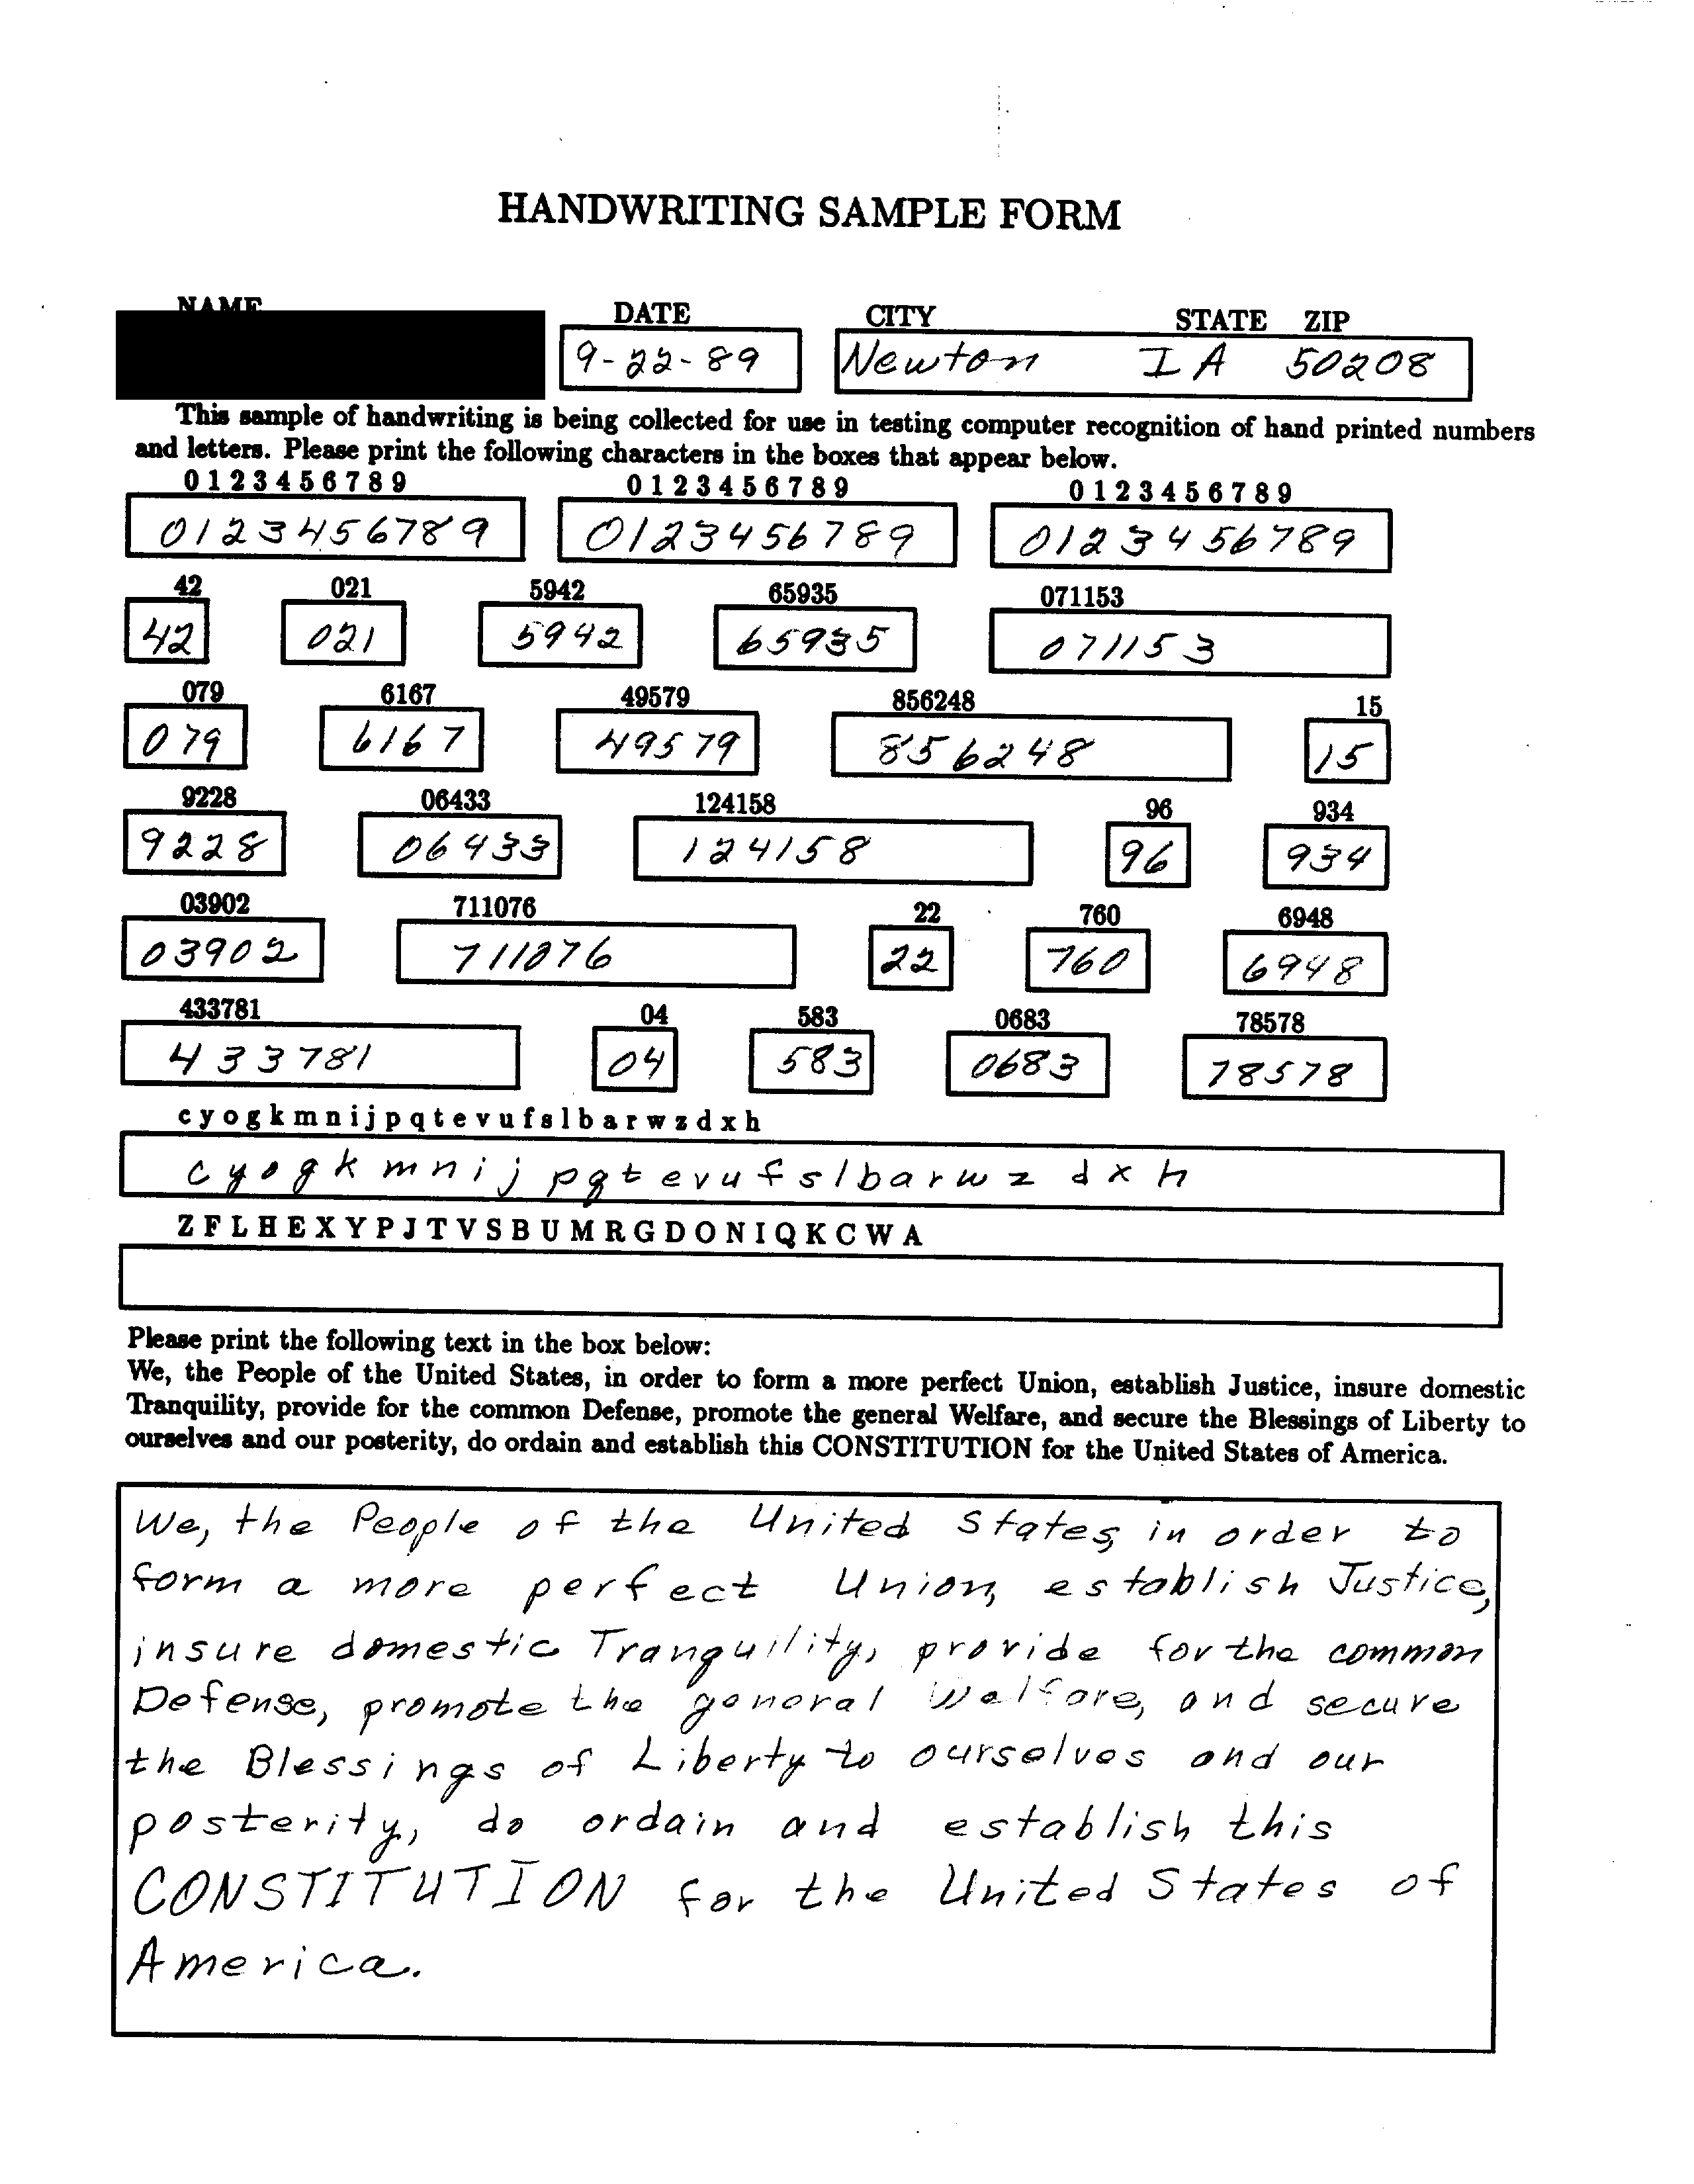 HANDWRITING SAMPLE FORM
NAME DATE CITY STATE ZIP
9-22-89 Newton IA 50208
This sample of handwriting is being collected for use in testing computer recognition of hand printed numbers
and letters. Please print the following characters in the boxes that appear below.
0 1 2 3 4 5 6 7 8 9 0 1 2 3 4 5 6 7 8 9 0 1 2 3 4 5 6 7 8 9
0123456789 0123456789 0123456789
42 021 5942 65935 071153
42 021 5942 65935 071153
079 6167 49579 856248 15
079 6167 49579 856248 15
9228 06433 124158 96 934
9228 06433 124158 96 934
03902 711076 22 760 6948
03902 711076 22 760 6948
433781 04 583 0683 78578
433781 04 583 0683 78578
c y o g k m n i j p q t e v u f s l b a r w z d x h
c y o g k m n i j p q t e v u f s l b a r w z d x h
Z F L H E X Y P J T V S B U M R G D O N I Q K C W A
Please print the following text in the box below:
We, the People of the United States, in order to form a more perfect Union, establish Justice, insure domestic
Tranquility, provide for the common Defense, promote the general Welfare, and secure the Blessings of Liberty to
ourselves and our posterity, do ordain and establish this CONSTITUTION for the United States of America.
We, the People of the United States, in order to
form a more perfect Union, establish Justice,
insure domestic Tranquility, provide for the common
Defense, promote the general Welfare, and secure
the Blessings of Liberty to ourselves and our
posterity, do ordain and establish this
CONSTITUTION for the United States of
America.